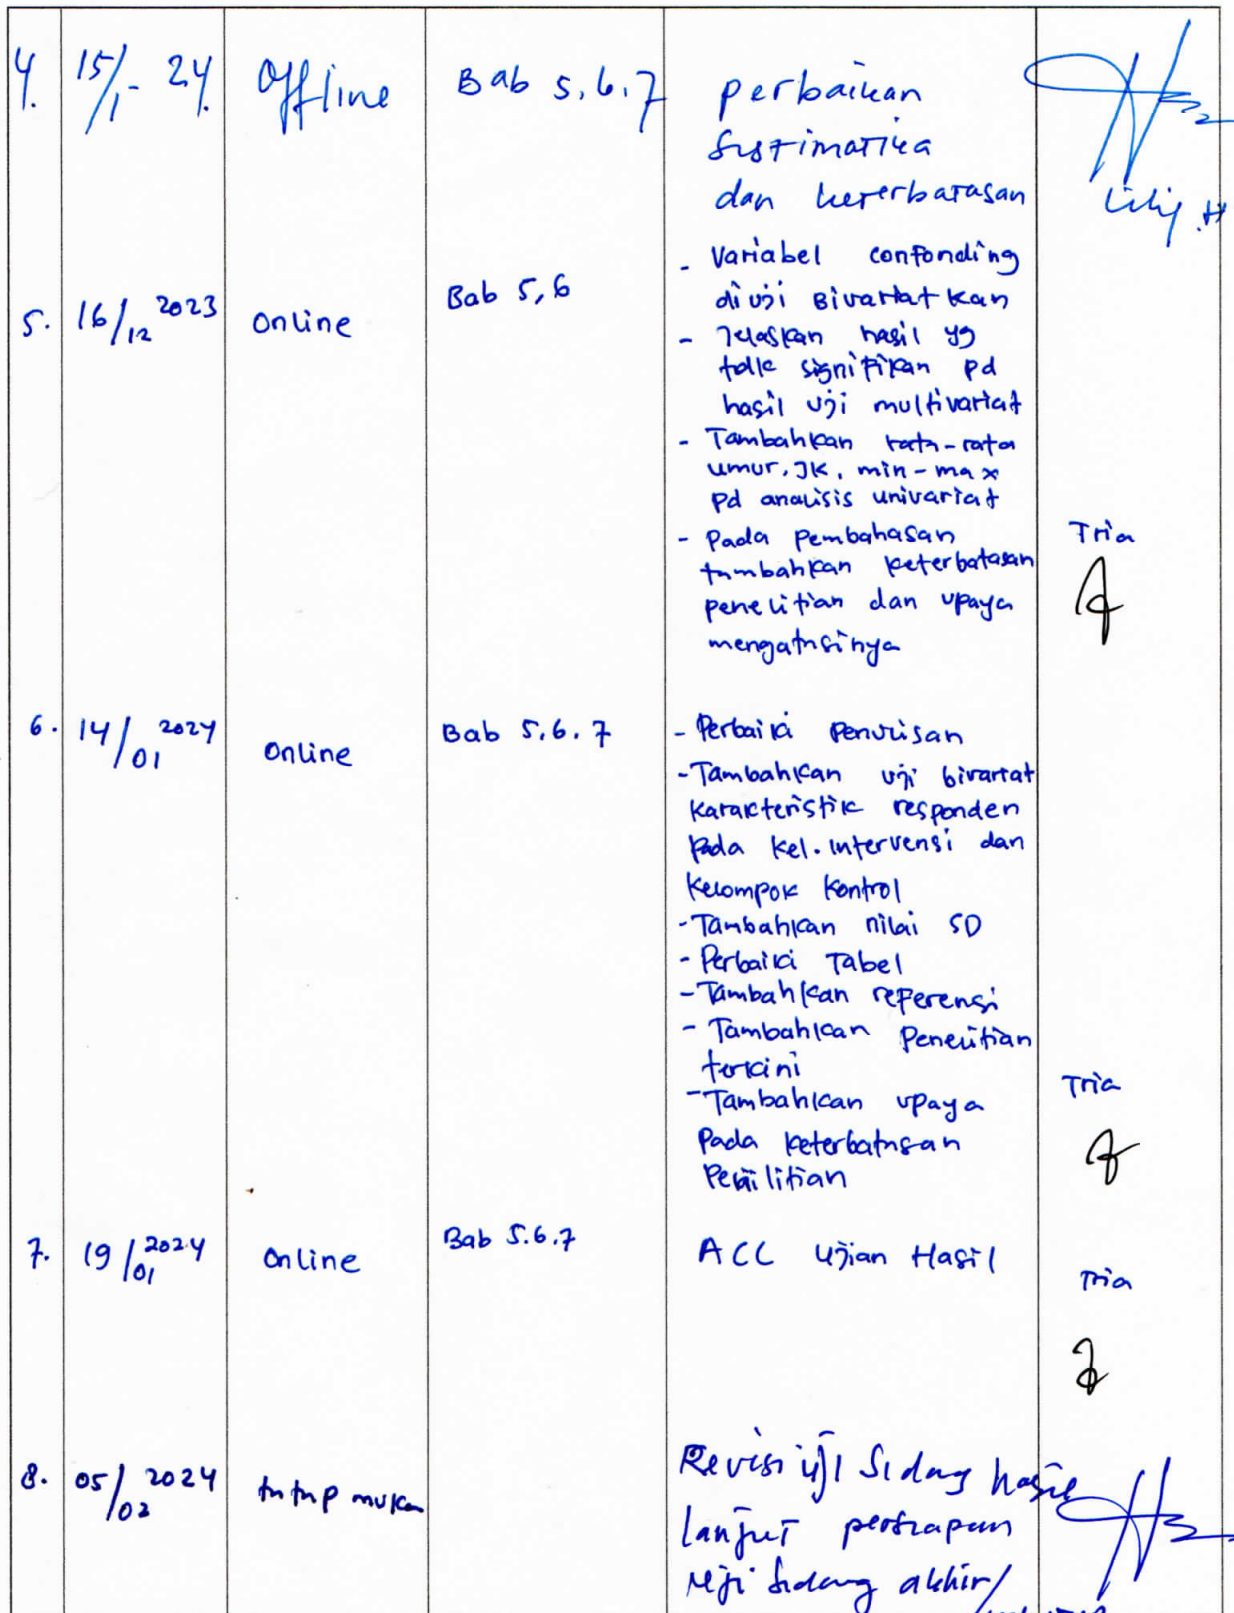 4. 15/1-24. Offline Bab 5,6,7 perbaikan
sistimatika
dan keterbatasan
Lilis .H
- Variabel confonding
5. 16/12 2023 Online Bab 5,6 di uji Bivariat kan
- Jelaskan hasil yg
tdk signifikan pd
hasil uji multivariat
- Tambahkan rata-rata
umur, JK, min-max
pd analisis univariat
- Pada pembahasan Tria
tambahkan keterbatasan
penelitian dan upaya
mengatasinya
6. 14/01 2024 Online Bab 5.6.7 - Perbaiki Penulisan
- Tambahkan uji bivariat
karakteristik responden
pada kel. intervensi dan
kelompok kontrol
- Tambahkan nilai SD
- Perbaiki Tabel
- Tambahkan referensi
- Tambahkan Penelitian
terkini
- Tambahkan upaya Tria
pada keterbatasan
Penilitian
7. 19/01 2024 Online Bab 5.6.7 ACC Ujian Hasil
Tria
8. 05/02 2024 tatap muka Revisi uji Sidang hasil
lanjut persiapan
uji sidang akhir/